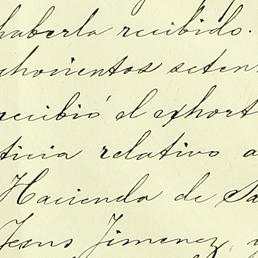 haberla recibido.
ochocientos seten
recibió el exhort
ticia relativo a
Hacienda de Sa
Jesus Jimenez,